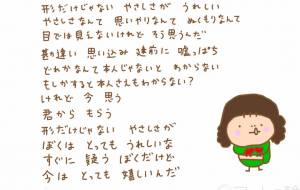 形だけじゃない やさしさが うれしい
やさしさなんて 思いやりなんて ぬくもりなんて
目では見えないけれど そう思うんだ
勘違い 思い込み 建前に 嘘っぱち
どれかなんて 本人じゃないと わからない
もしかすると 本人さえもわからない?
けれど 今 思う
君から もらう
形だけじゃない やさしさが
ぼくは とっても うれしいな
すぐに 疑う ぼくだけど
今は とっても 嬉しいんだ